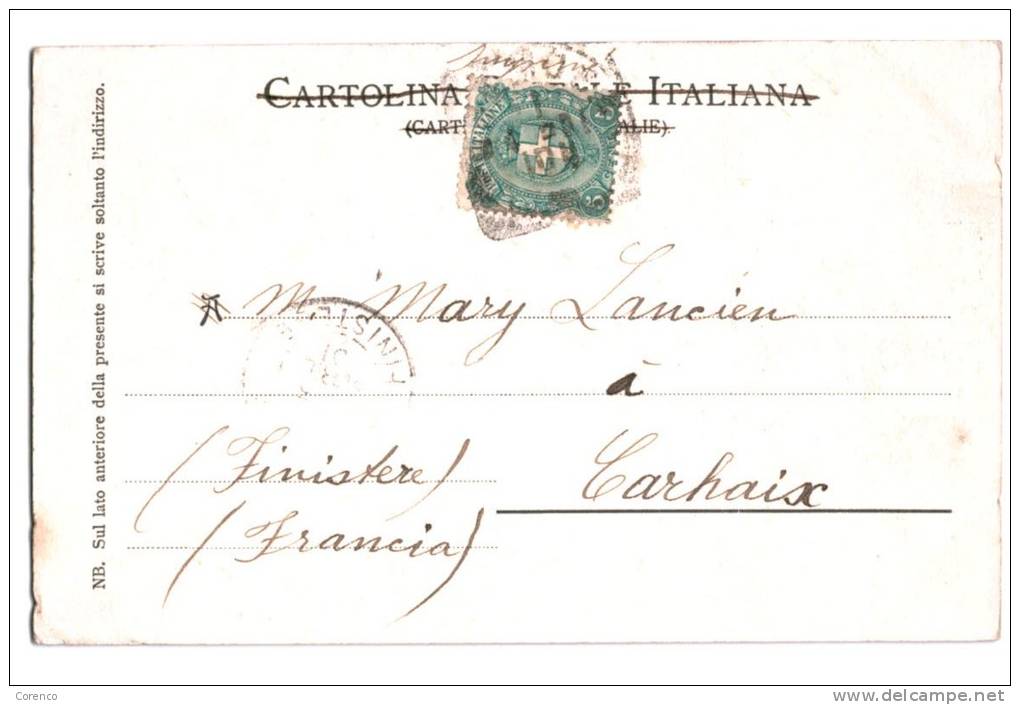 CARTOLINA ITALIANA
(CART ALIE).
POSTE ITALIANE
5
5
FINISTE
M. Mary Lancien
à
Carhaix
(Finistere)
(Francia)
NB. Sul lato anteriore della presente si scrive soltanto l'indirizzo.
Corenco
www.delcampe.net